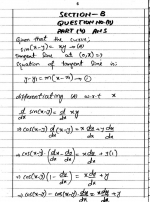 SECTION-B
QUESTION NO (4)
PART (i) ANS
Given that the curve,
sin(x-y) = xy → (1)
tangent line at (0,π) = ?
Equation of tangent line is:
y-y₁ = m(x-x₁) → (2)
differentiating (1) w.r.t x
d/dx sin(x-y) = d/dx xy
⇒ cos(x-y) d/dx (x-y) = x dy/dx + y dx/dx
⇒ cos(x-y) (dx/dx - dy/dx) = x dy/dx + y(1)
⇒ cos(x-y) (1 - dy/dx) = x dy/dx + y
⇒ cos(x-y) - cos(x-y) dy/dx = x dy/dx + y